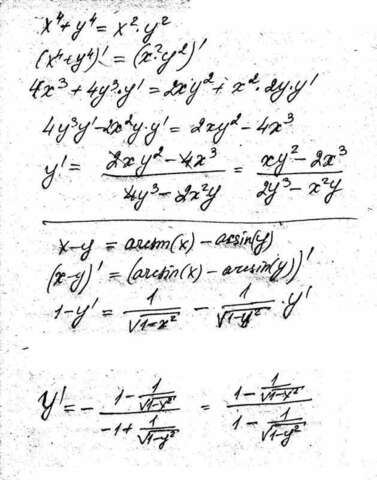 x⁴ + y⁴ = x² · y²
(x⁴ + y⁴)' = (x² y²)'
4x³ + 4y³ · y' = 2xy² + x² · 2y · y'
4y³y' - 2x²y · y' = 2xy² - 4x³
y' = (2xy² - 4x³)/(4y³ - 2x²y) = (xy² - 2x³)/(2y³ - x²y)
x - y = arcsin(x) - arcsin(y)
(x - y)' = (arcsin(x) - arcsin(y))'
1 - y' = 1/√(1-x²) - 1/√(1-y²) · y'
y' = - (1 - 1/√(1-x²))/(-1 + 1/√(1-y²)) = (1 - 1/√(1-x²))/(1 - 1/√(1-y²))